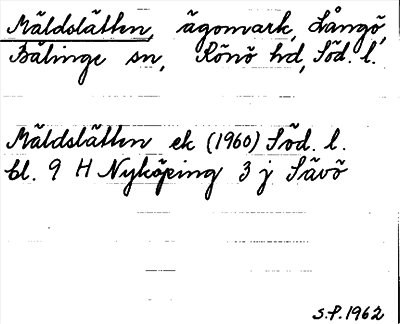 Mäldslätten, ägomark, Långö,
Bälinge sn, Rönö hd, Söd. l.
Mäldslätten ek (1960) Söd. l.
bl. 9 H Nyköping 3 j Sävö
S.P. 1962